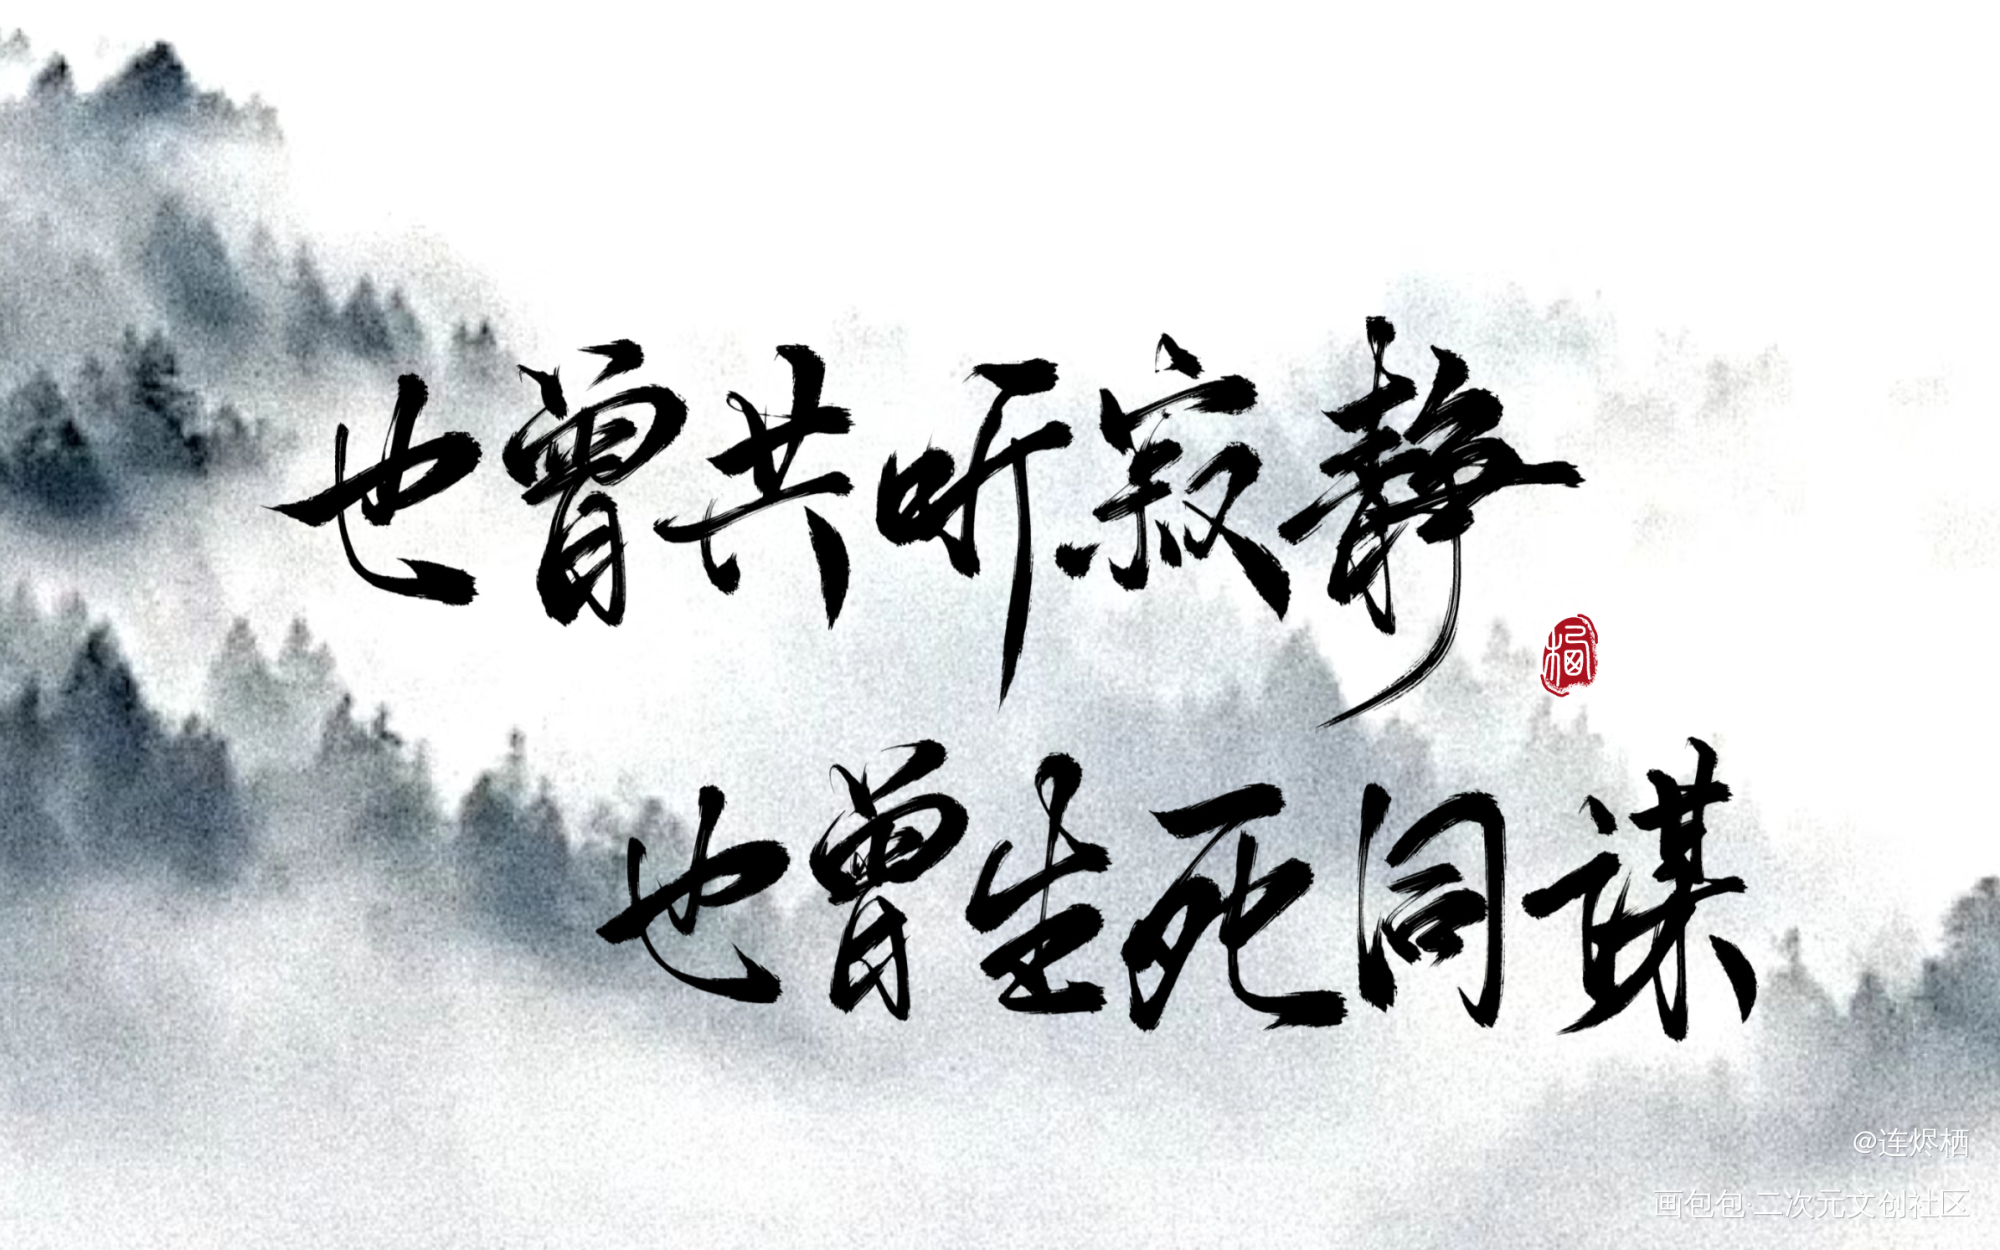 也曾共听寂静
栖
也曾生死同谋
@连烬栖
画包包·二次元文创社区